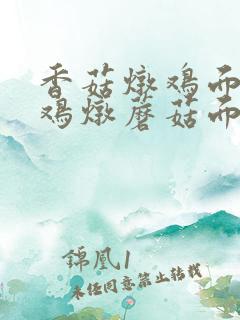 香菇燉鸡而
鸡燉蘑菇而
錦凰1
未经同意禁止转载